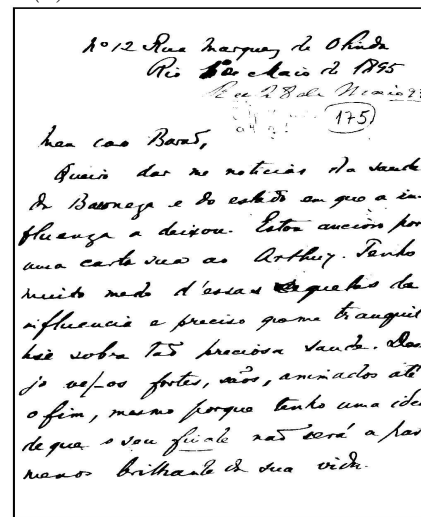 Nº 12 Rua Marquez de Olinda
Rio 1 de Maio de 1895
28 de Maio
175
Meu caro Barão,
Queira dar me noticias da saude
da Baroneza e do estado em que a in-
fluenza a deixou. Estou ancioso por
uma carta sua ao Arthur. Tenho
muito medo d'essas sequelas da
influencia e preciso que me tranquil
lise sobre tão preciosa saude. Dese
jo vel-os fortes, sãos, animados até
o fim, mesmo porque tenho uma idea
de que o seu finale não será a parte
menos brilhante da sua vida.